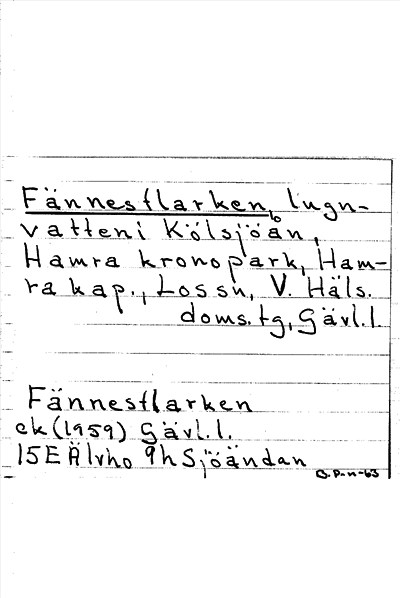 Fännesflarken, lugn-
vatten i Kölsjöån,
Hamra kronopark, Ham-
ra kap., Los sn, V. Häls.
doms. tg, Gävl. l.
Fännesflarken
ek (1959) Gävl. l.
15E Älvho 9h Sjöändan